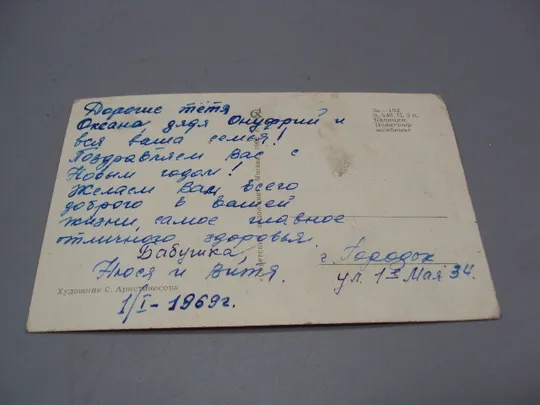 Дорогие тётя
Оксана дядя Онуфрий и
вся ваша семья!
Поздравляем вас с
Новым годом!
Желаем вам всего
доброго в вашей
жизни, самое главное
отличного здоровья.
Бабушка,
Нюся и Витя.
1/I-1969г.
Художник С.
г. Городок
ул. 1е Мая 34.
Калинин